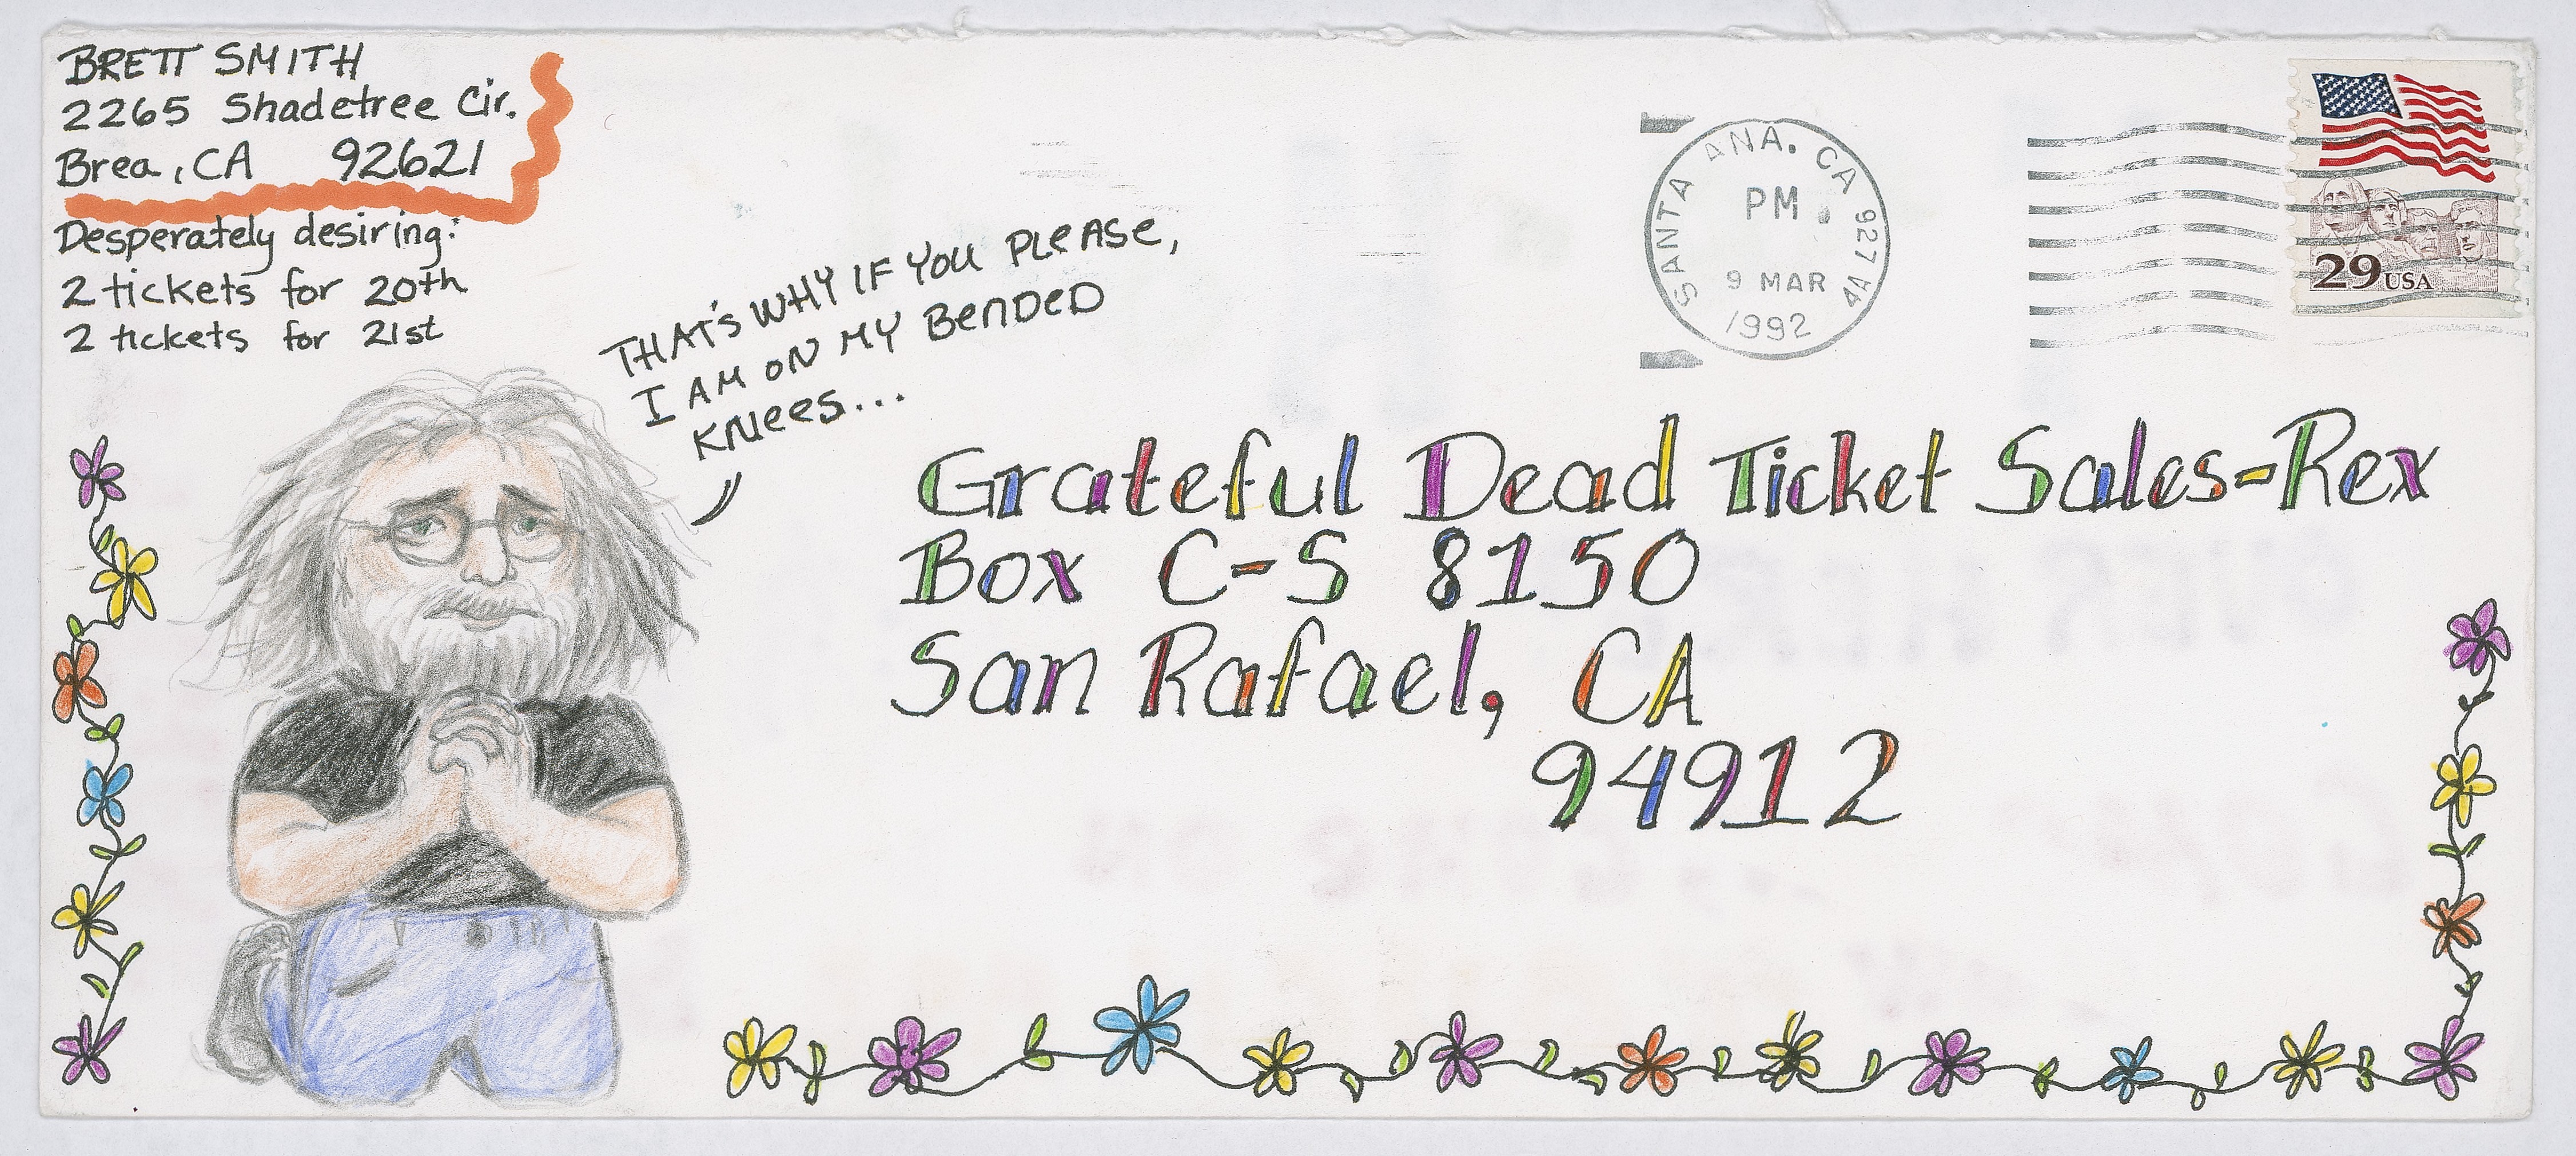 BRETT SMITH
2265 Shadetree Cir.
Brea, CA 92621
Desperately desiring:
2 tickets for 20th
2 tickets for 21st
THAT'S WHY IF YOU PLEASE,
I AM ON MY BENDED
KNEES...
SANTA ANA. CA 927 4A
PM
9 MAR
1992
29 USA
Grateful Dead Ticket Sales-Rex
Box C-S 8150
San Rafael, CA
94912